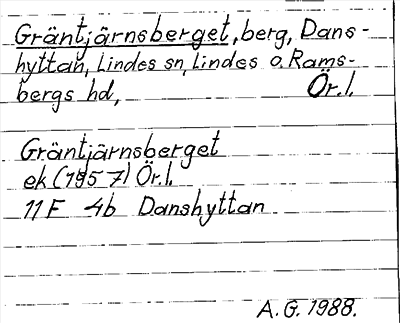 Gräntjärnsberget, berg, Dans-
hyttan, Lindes sn, Lindes o. Rams-
bergs hd, Ör.l.
Gräntjärnsberget
ek (1957) Ör.l.
11F 4b Danshyttan
A.G. 1988.